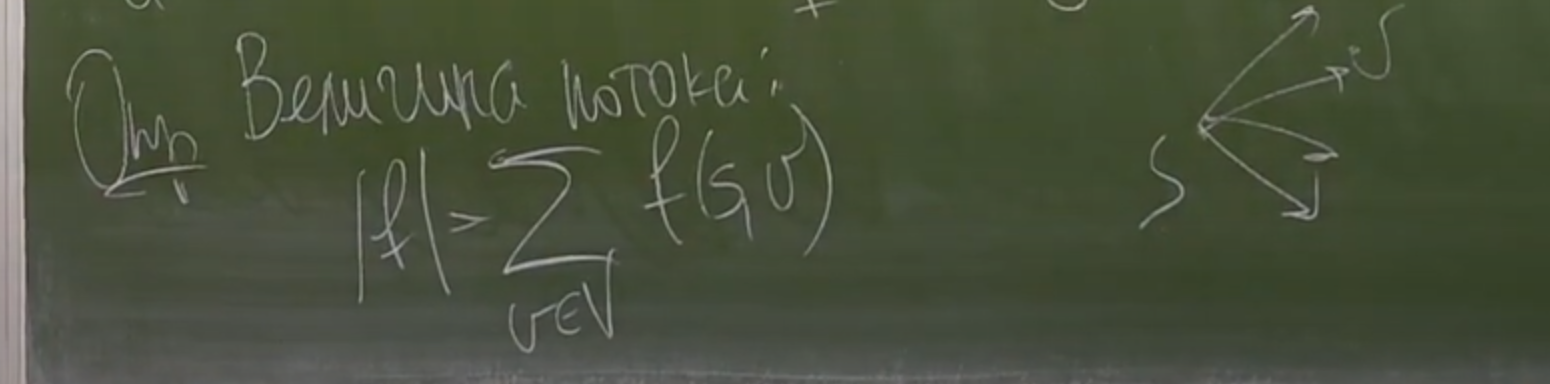 Опр Величина потока:
|f| = ∑ f(s, v)
v∈V
S
v